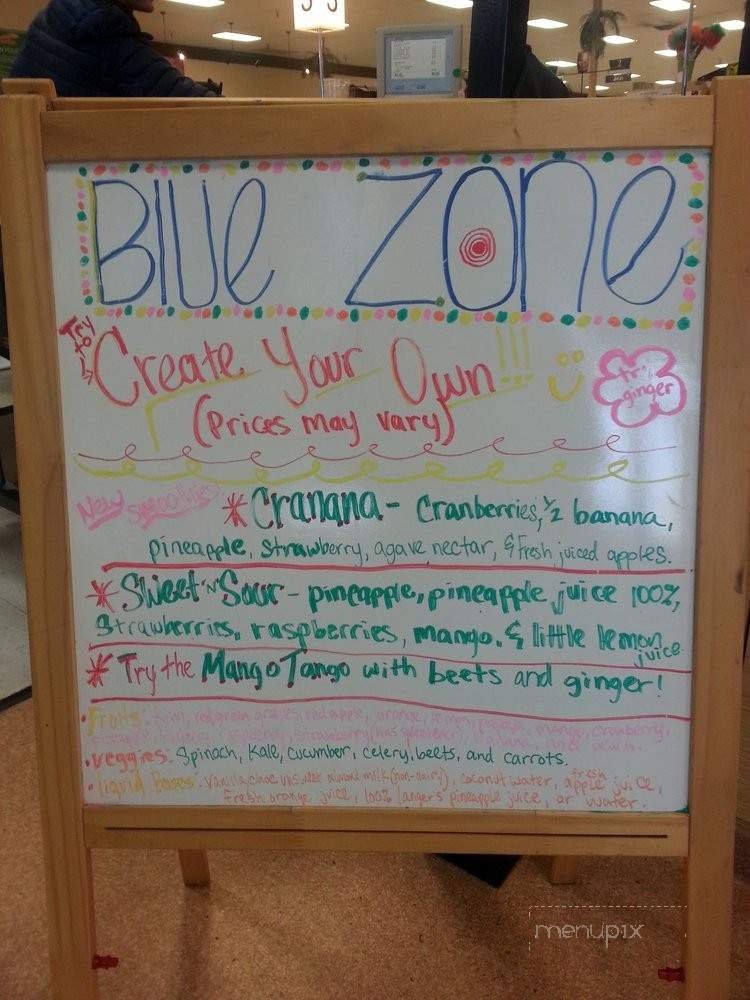 Blue Zone
Try to
Create Your Own!!!
(Prices may vary)
try ginger
New Smoothies!
*Cranana - Cranberries, 1/2 banana,
pineapple, strawberry, agave nectar, & fresh juiced apples.
*Sweet 'N' Sour - pineapple, pineapple juice 100%,
strawberries, raspberries, mango. & little lemon juice.
*Try the Mango Tango with beets and ginger!
•fruits: kiwi, red/green grapes, red apple, orange, lemon, papaya, mango, cranberry,
raspberry, strawberry (has sweetener), banana, and peach.
•veggies: Spinach, Kale, cucumber, celery, beets, and carrots.
•liquid bases: vanilla almond milk (non-dairy), coconut water, fresh apple juice,
fresh orange juice, 100% langers pineapple juice, or water.
menupix